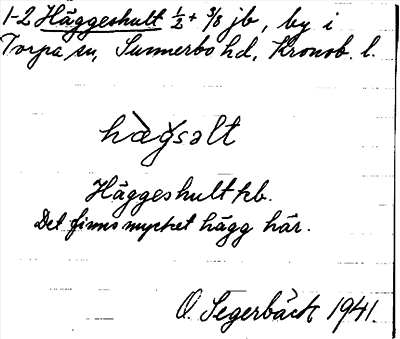 1-2 Häggeshult ½ + 3/8 jb, by i
Torpa sn, Sunnerbo hd, Kronob. l.
hàǵsəlt
Häggeshult kb.
Det finns mycket hägg här.
O. Segerbäck 1941.